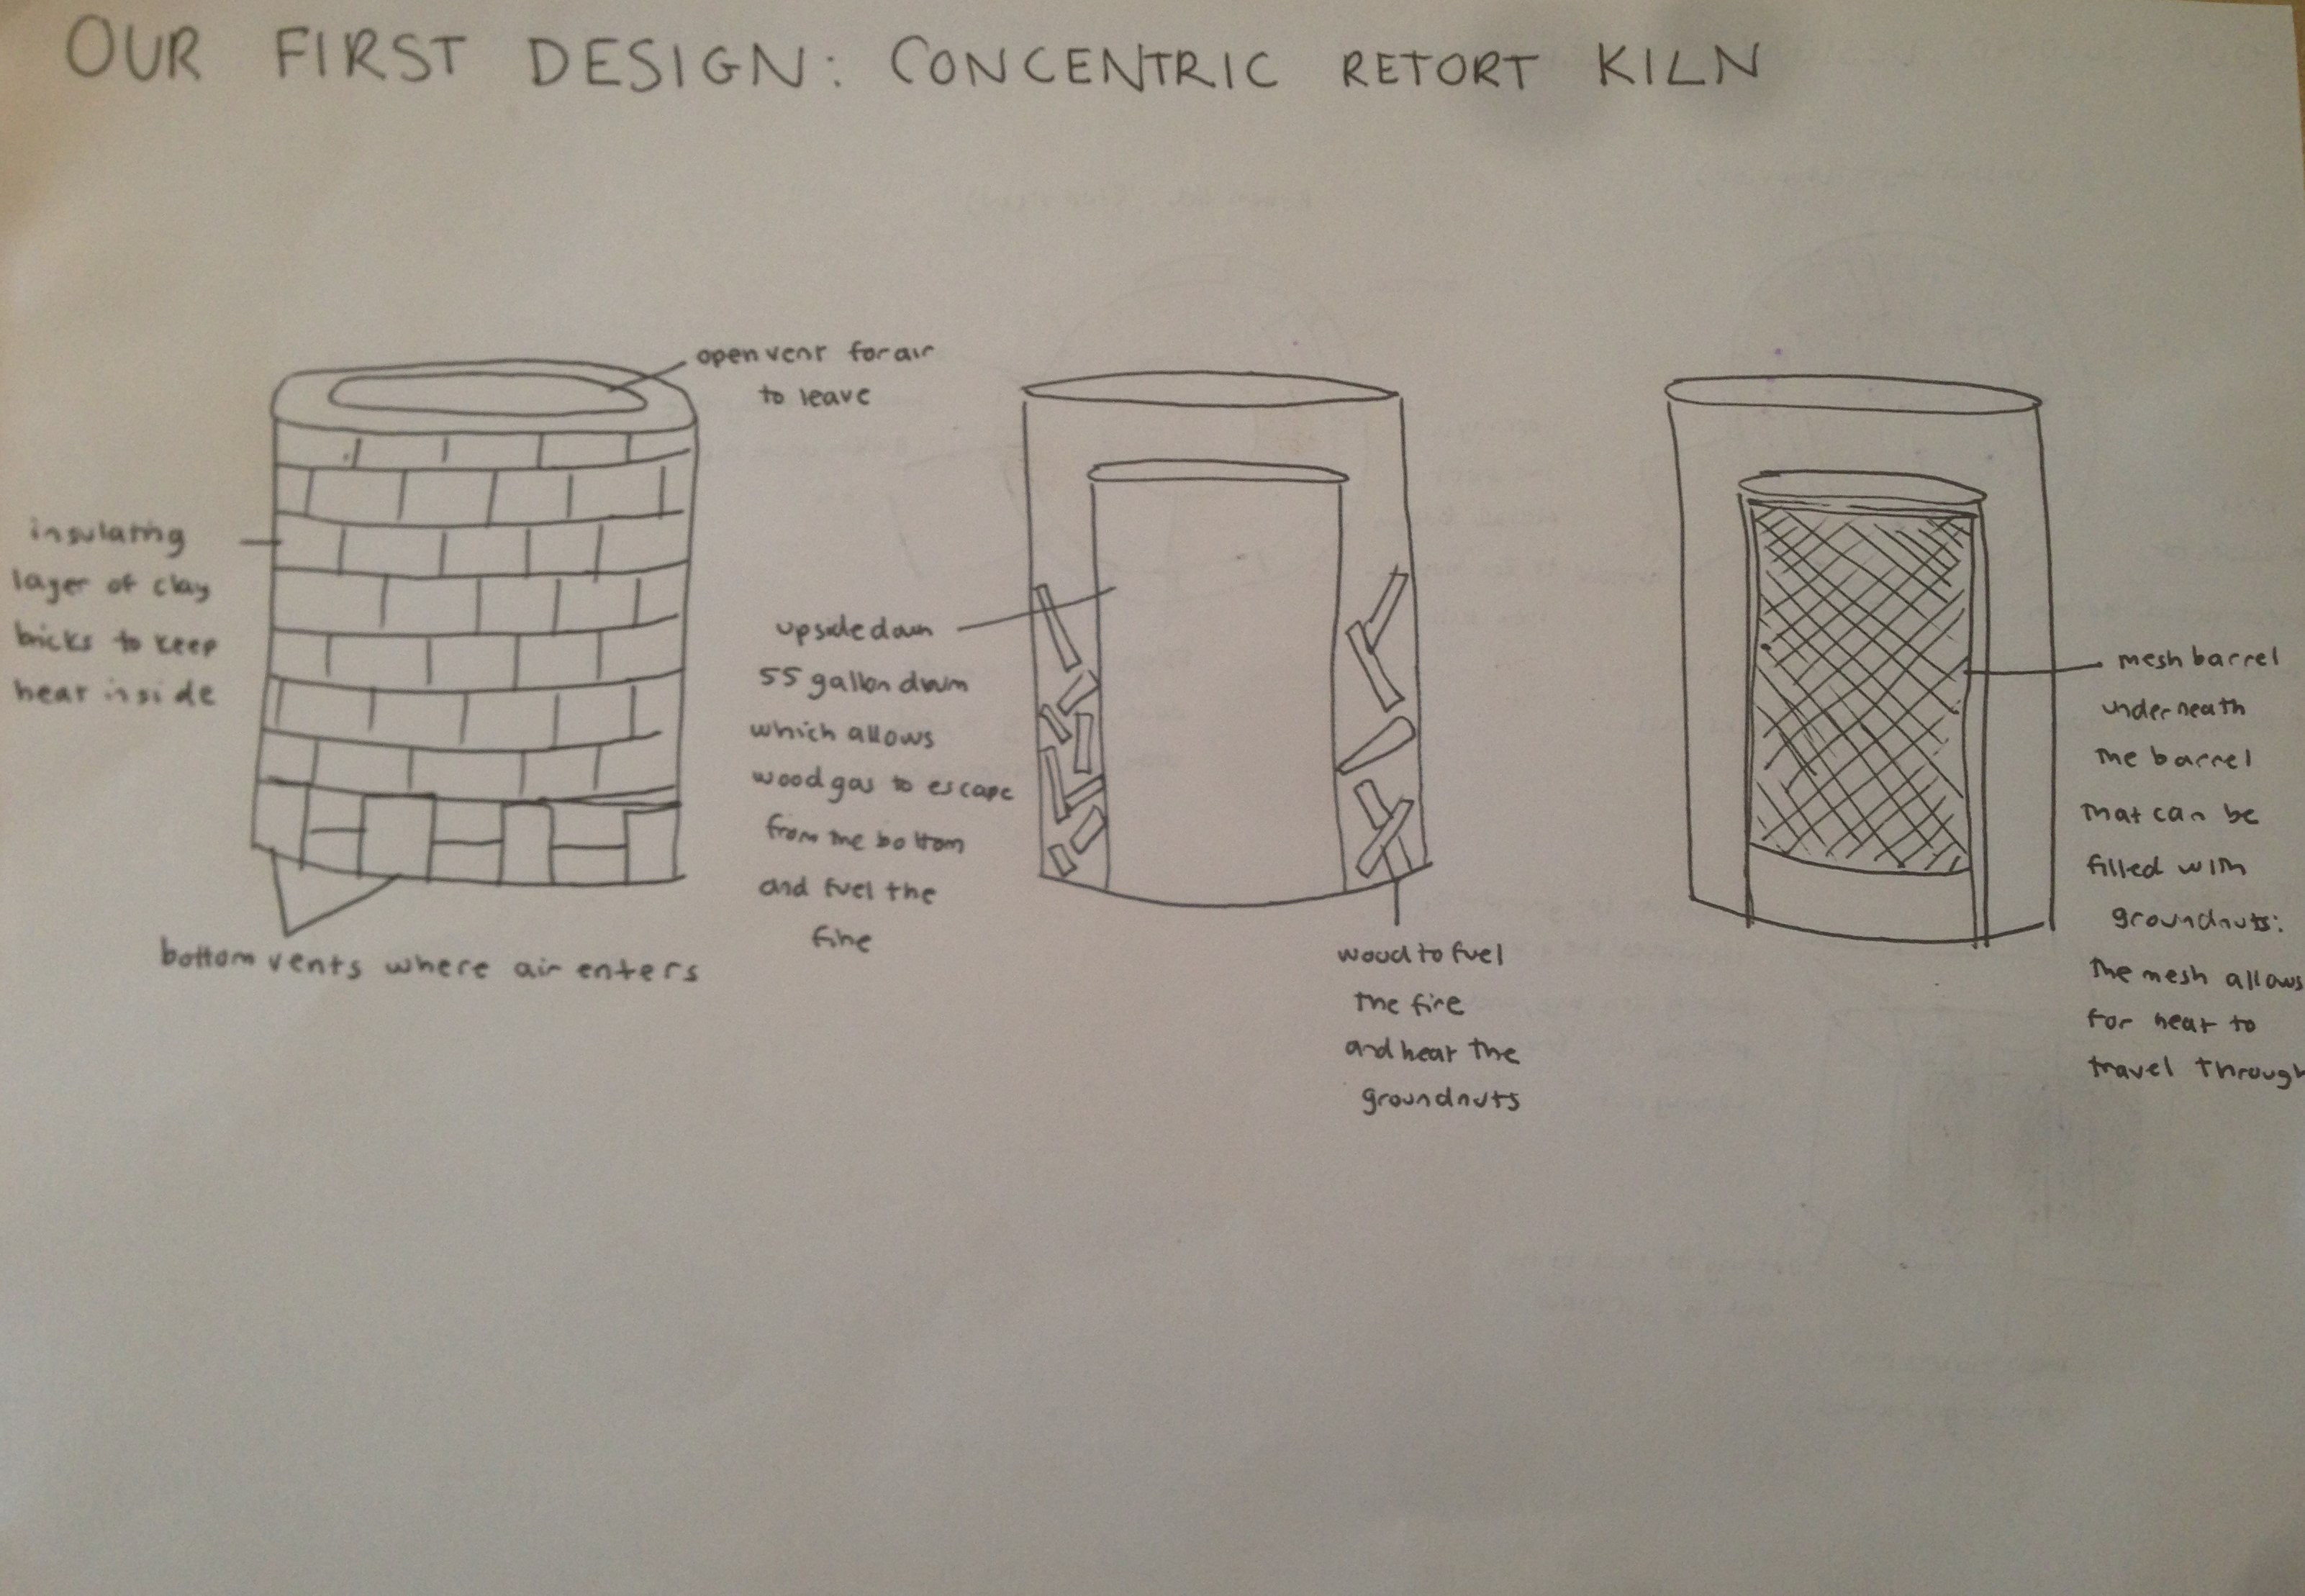 OUR FIRST DESIGN: CONCENTRIC RETORT KILN
open vent for air
to leave
insulating
layer of clay
bricks to keep
heat inside
bottom vents where air enters
upside down
55 gallon drum
which allows
wood gas to escape
from the bottom
and fuel the
fire
wood to fuel
the fire
and heat the
groundnuts
mesh barrel
underneath
the barrel
that can be
filled with
groundnuts:
the mesh allows
for heat to
travel through